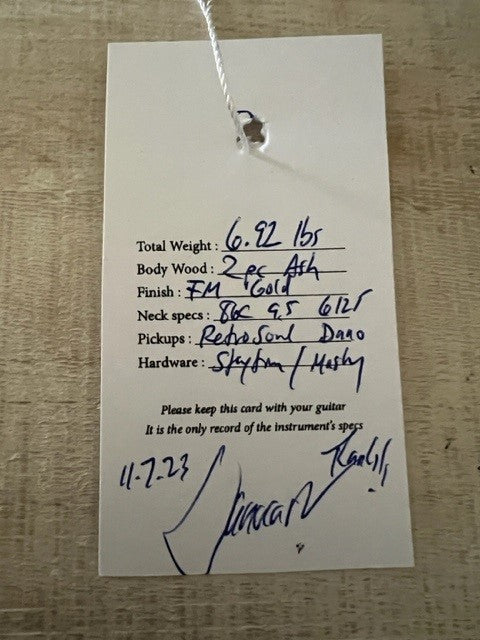 Total Weight : 6.92 lbs
Body Wood : 2 pc Ash
Finish : FM Gold
Neck specs : 86C 9.5 6125
Pickups : RetroSoul Dano
Hardware : / Mastry
Please keep this card with your guitar
It is the only record of the instrument's specs
11.7.23 Thanks!!